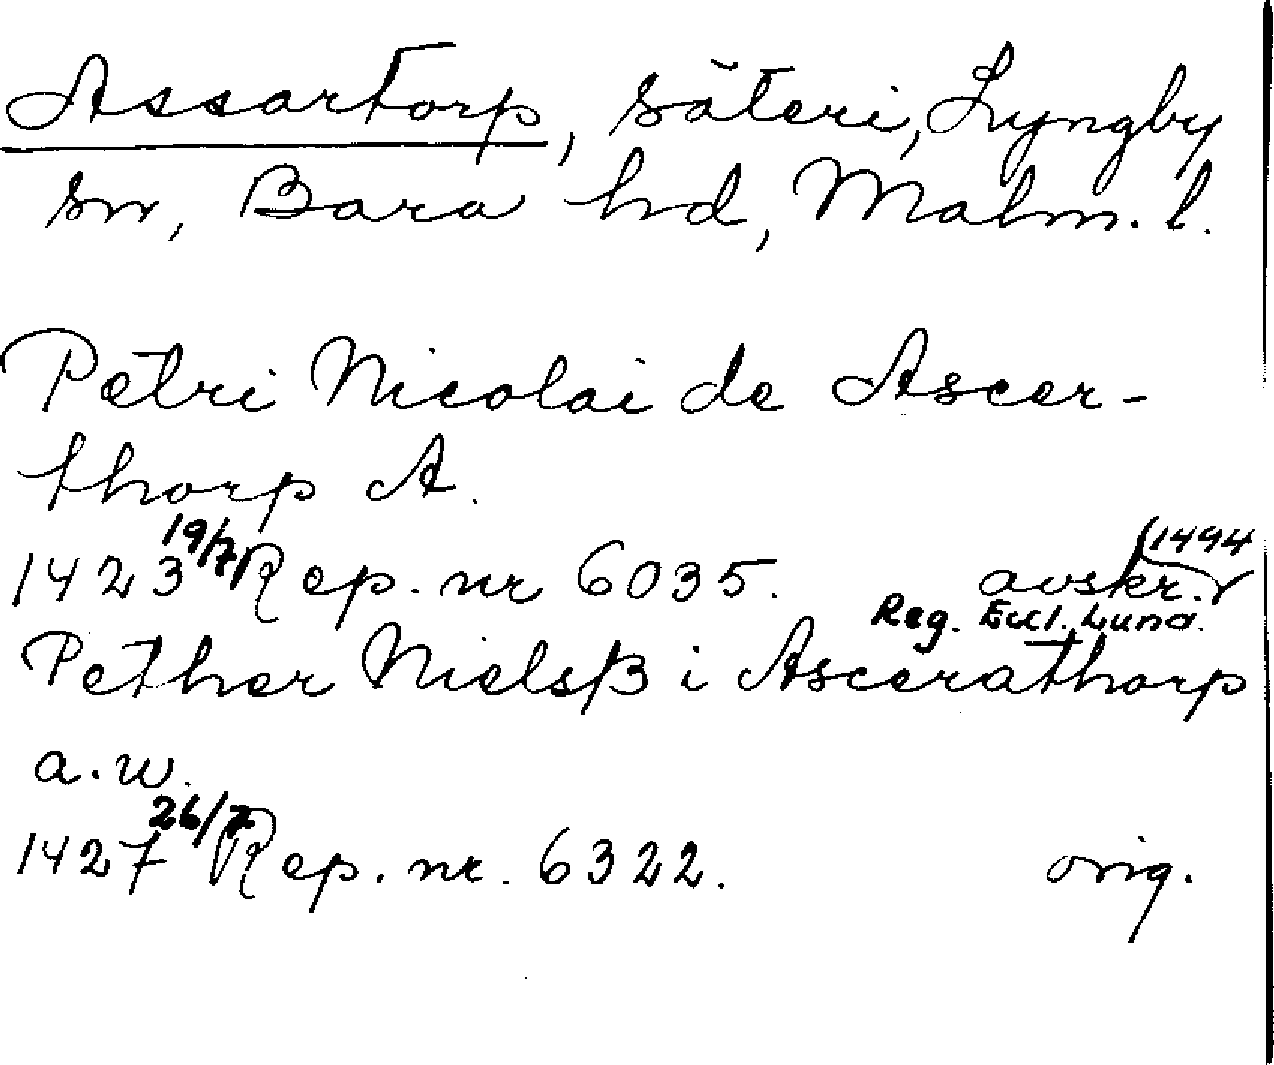 Assartorp, säteri, Lyngby
sn, Bara hd, Malm. l.
Petri Nicolai de Ascer-
thorp A.
1423 19/7 Rep. nr 6035. avskr. (1494
Reg. Eccl. Lund.
Pether Nielsß i Ascerathorp
a. w.
1427 26/7 Rep. nr. 6322. orig.